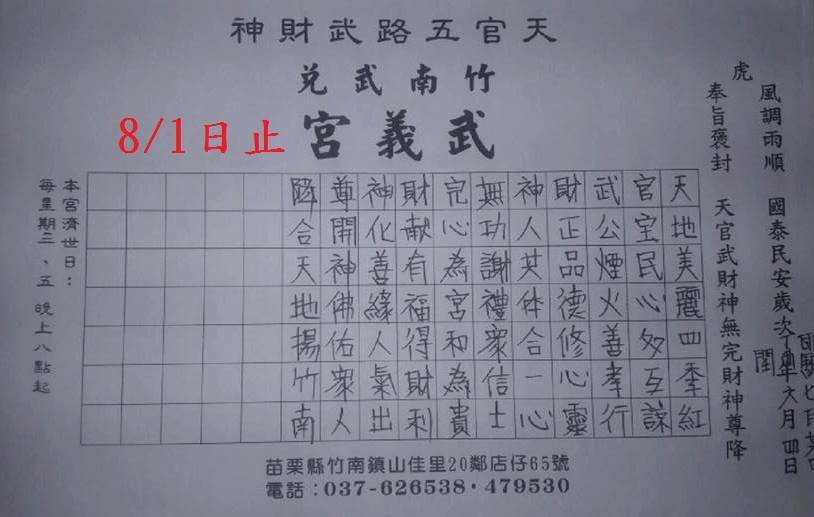 天官五路武財神
竹南武兌
武義宮
8/1日止
虎
風調雨順 國泰民安歲次 年閏六月四日
奉旨褒封 天官武財神無完財神尊降
天地美麗四季紅
官宝民心互諒
武公煙火善孝行
財正品德修心靈
神人共体合一心
無功謝禮眾信士
完心為宮和為貴
財献有福得財利
神化善緣人氣出
尊開神佛佑眾人
降合天地揚竹南
本宮濟世日：
每星期二、五 晚上八點起
苗栗縣竹南鎮山佳里20鄰店仔65號
電話：037-626538・479530